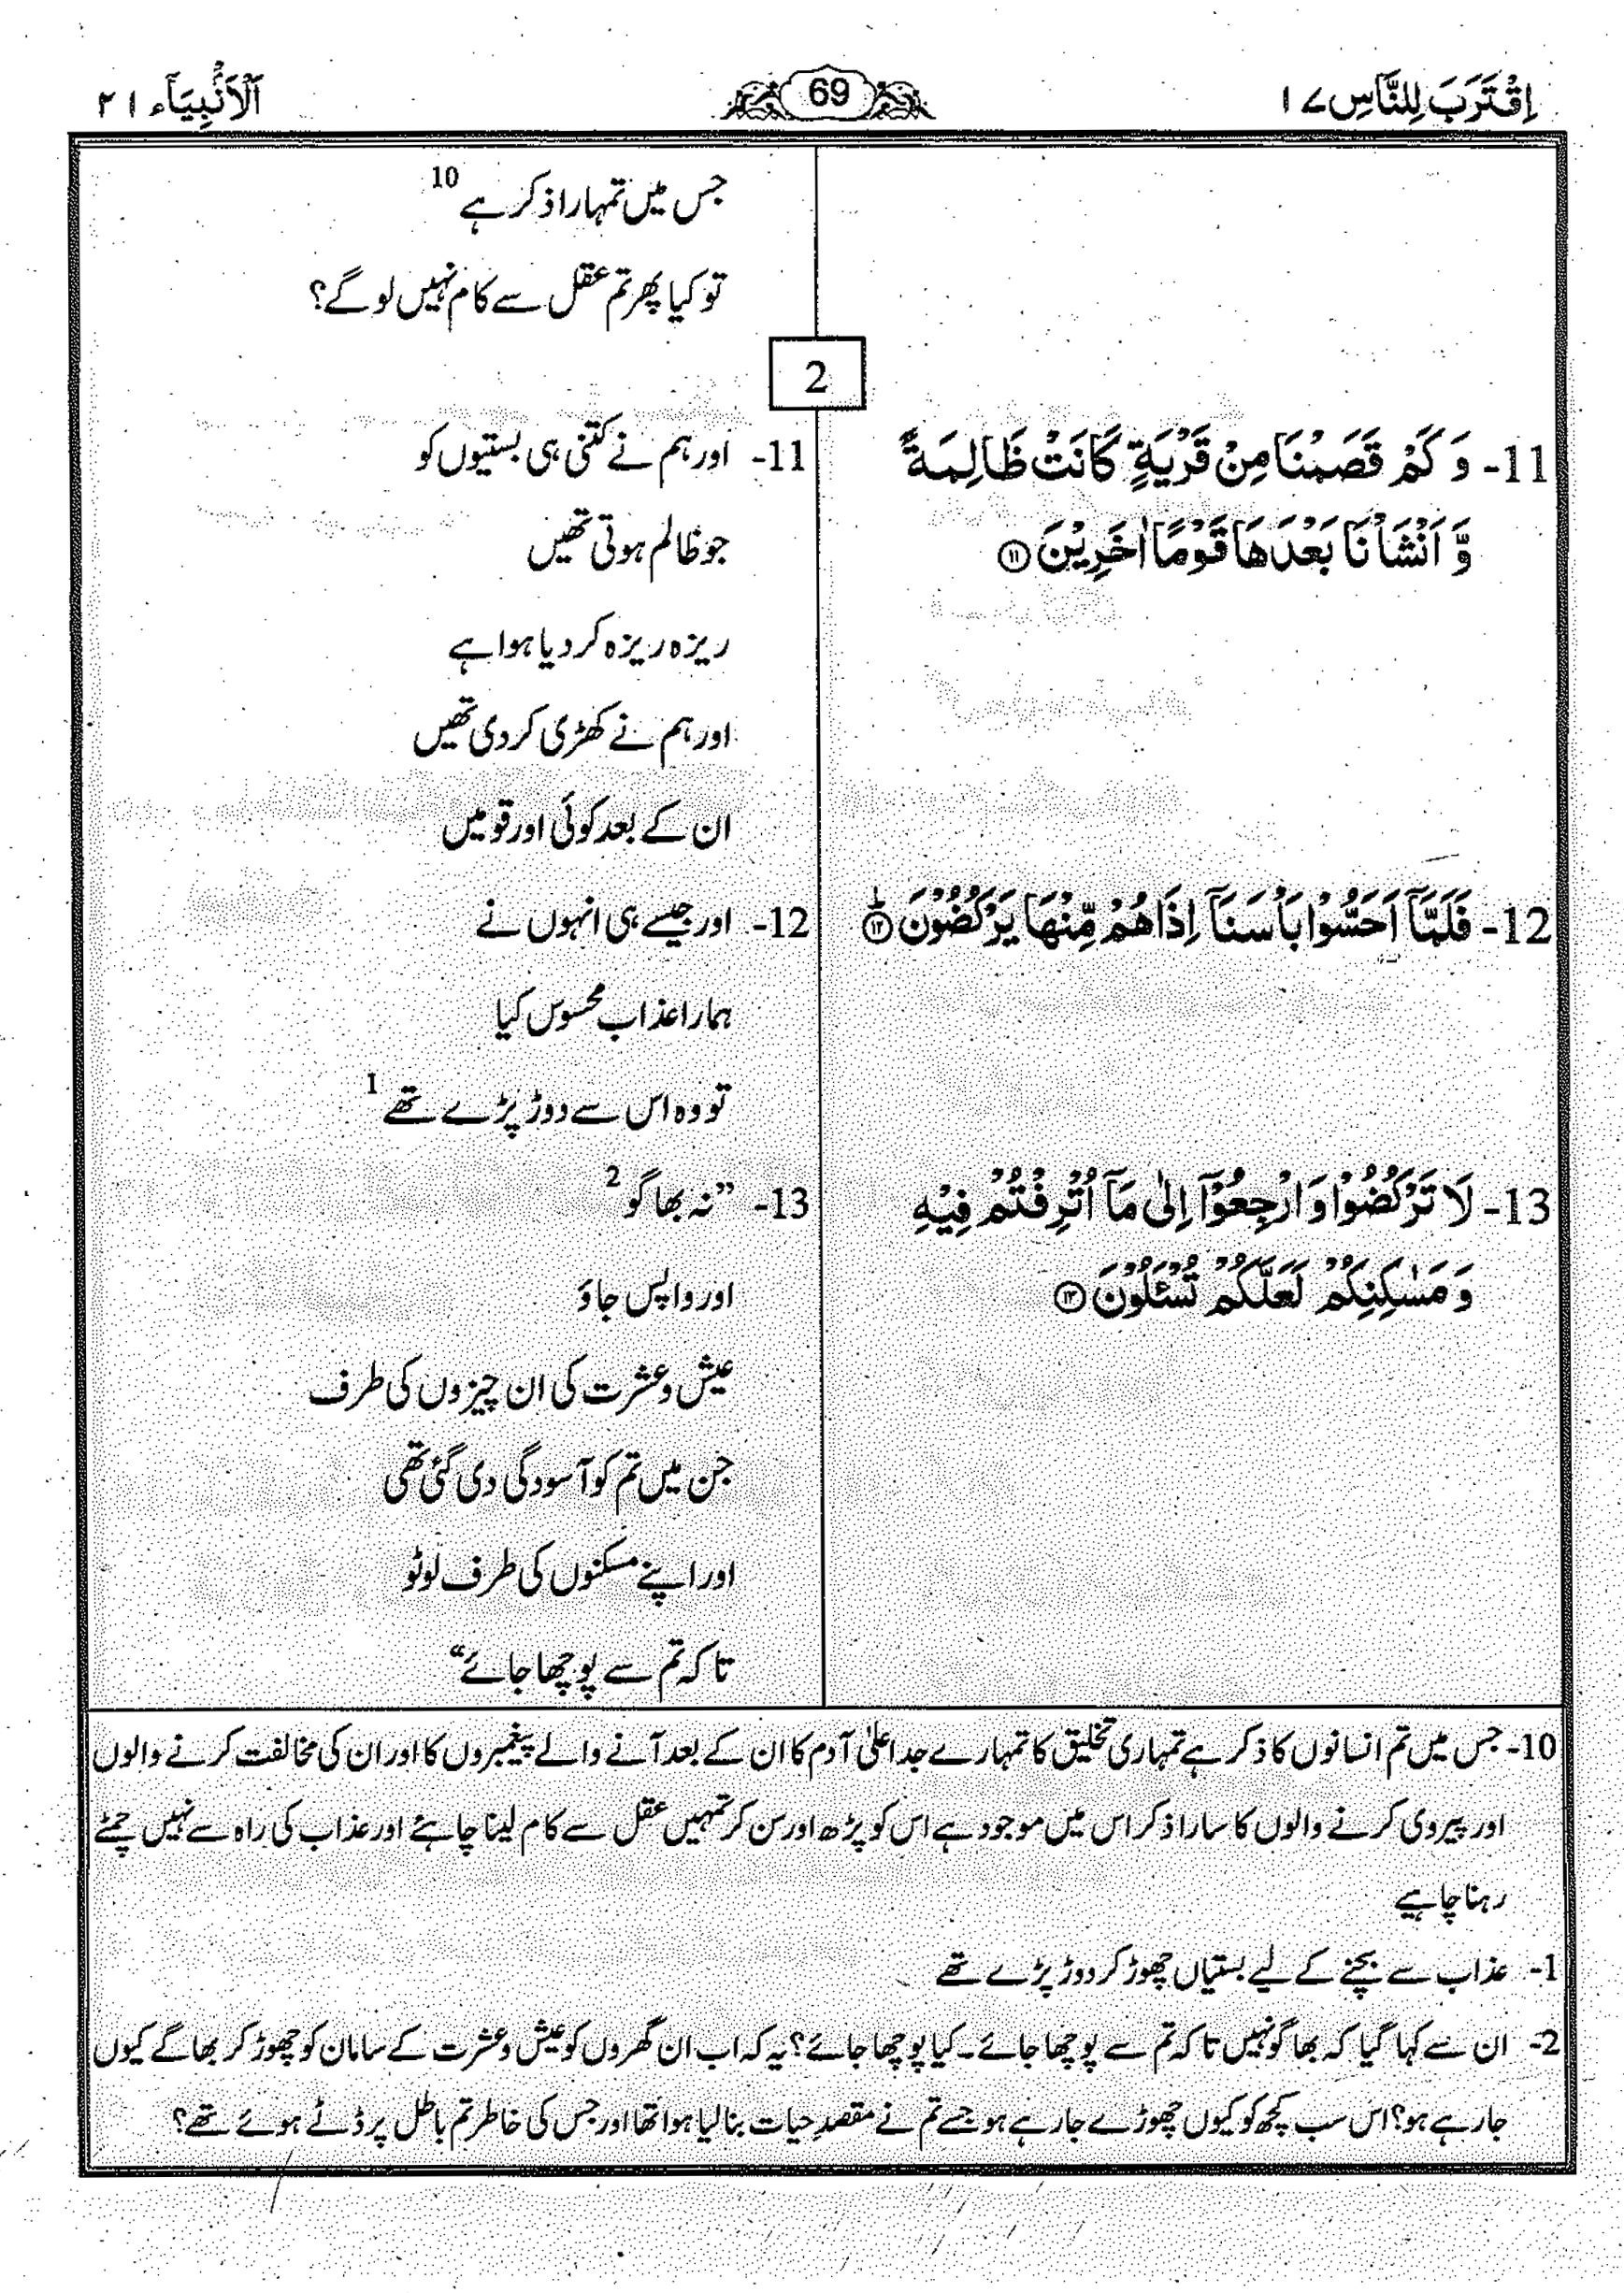 اِقْتَرَبَ لِلنَّاسِ ۱۷
69
اَلْاَنْۢبِيَآء ۲۱
جس میں تمہارا ذکر ہے 10
تو کیا پھر تم عقل سے کام نہیں لو گے؟
2
11- وَ كَمْ قَصَمْنَا مِنْ قَرْيَةٍ كَانَتْ ظَالِمَةً
وَّ اَنْشَاْنَا بَعْدَهَا قَوْمًا اٰخَرِيْنَ ۝۱۱
11- اور ہم نے کتنی ہی بستیوں کو
جو ظالم ہوتی تھیں
ریزہ ریزہ کر دیا ہوا ہے
اور ہم نے کھڑی کر دی تھیں
ان کے بعد کوئی اور قومیں
12- فَلَمَّاۤ اَحَسُّوْا بَاْسَنَاۤ اِذَا هُمْ مِّنْهَا يَرْكُضُوْنَ ۝۱۲ؕ
12- اور جیسے ہی انہوں نے
ہمارا عذاب محسوس کیا
تو وہ اس سے دوڑ پڑے تھے 1
13- لَا تَرْكُضُوْا وَ ارْجِعُوْۤا اِلٰى مَاۤ اُتْرِفْتُمْ فِيْهِ
وَ مَسٰكِنِكُمْ لَعَلَّكُمْ تُسْـَٔلُوْنَ ۝۱۳
13- ”نہ بھاگو 2
اور واپس جاؤ
عیش و عشرت کی ان چیزوں کی طرف
جن میں تم کو آسودگی دی گئی تھی
اور اپنے مسکنوں کی طرف لوٹو
تا کہ تم سے پوچھا جائے“
10- جس میں تم انسانوں کا ذکر ہے تمہاری تخلیق کا تمہارے جد اعلیٰ آدم کا ان کے بعد آنے والے پیغمبروں کا اور ان کی مخالفت کرنے والوں
اور پیروی کرنے والوں کا سارا ذکر اس میں موجود ہے اس کو پڑھ اور سن کر تمہیں عقل سے کام لینا چاہئے اور عذاب کی راہ سے نہیں چمٹے
رہنا چاہیے
1- عذاب سے بچنے کے لیے بستیاں چھوڑ کر دوڑ پڑے تھے
2- ان سے کہا گیا کہ بھاگو نہیں تا کہ تم سے پوچھا جائے۔ کیا پوچھا جائے؟ یہ کہ اب ان گھروں کو عیش و عشرت کے سامان کو چھوڑ کر بھاگے کیوں
جا رہے ہو؟ اس سب کچھ کو کیوں چھوڑے جا رہے ہو جسے تم نے مقصدِ حیات بنا لیا ہوا تھا اور جس کی خاطر تم باطل پر ڈٹے ہوئے تھے؟